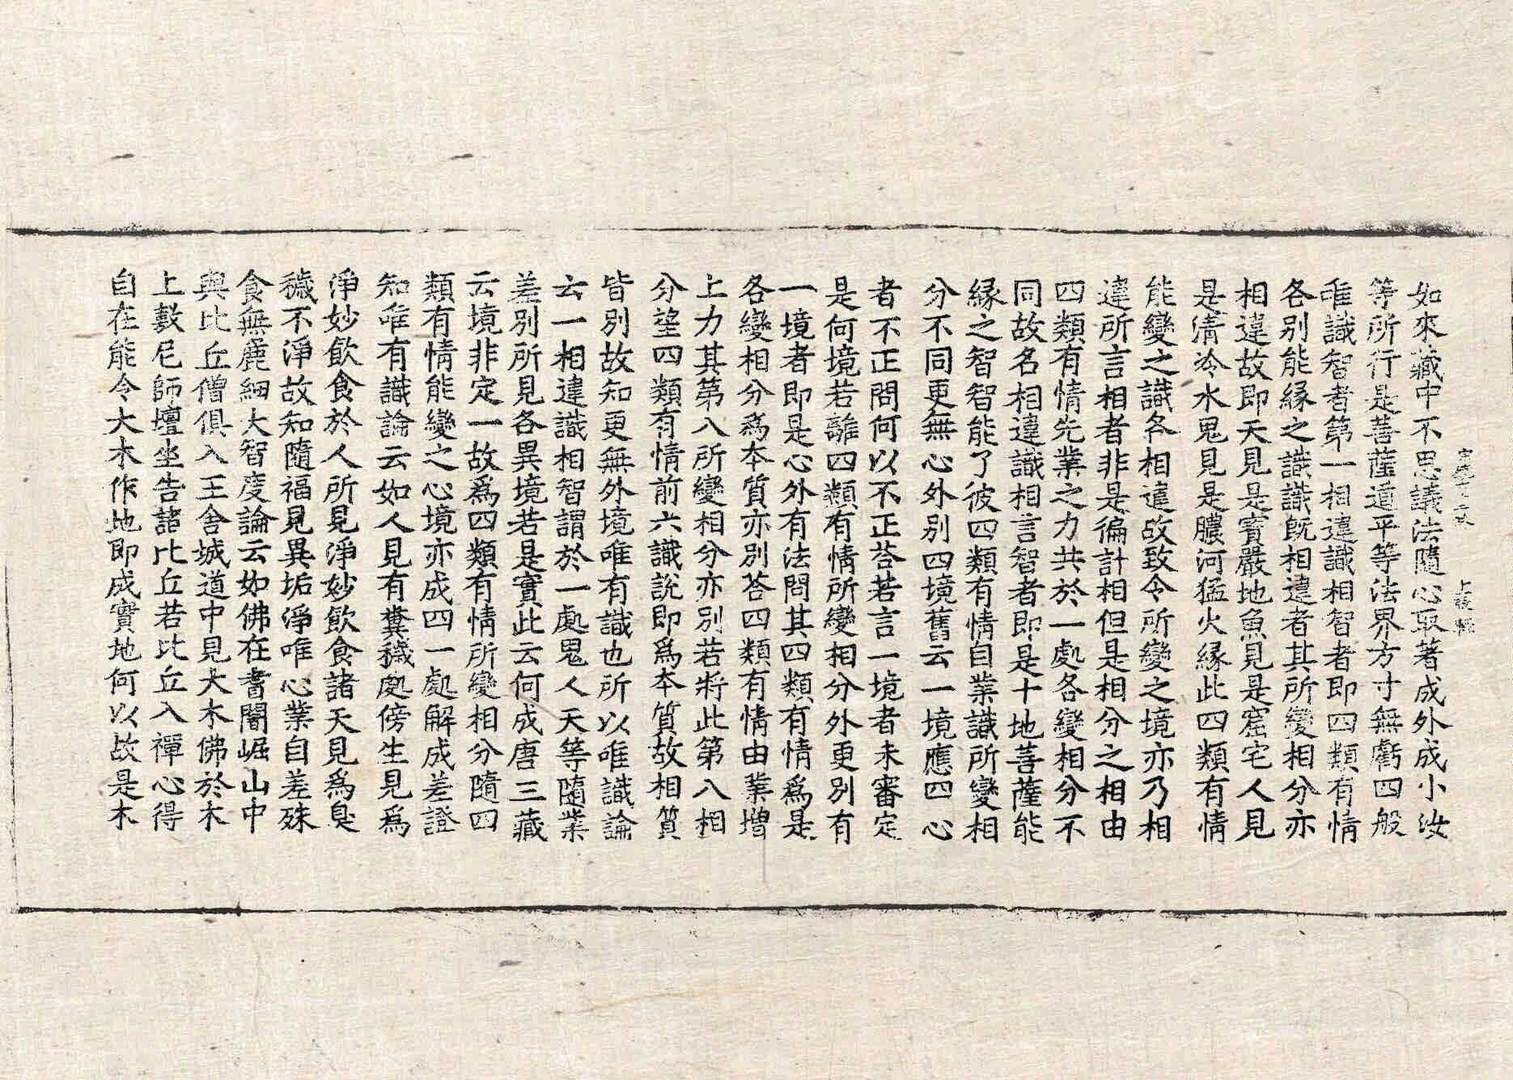 如來藏中不思議法隨心取著成外成小汝
等所行是菩薩道平等法界方寸無虧四般
唯識智者第一相違識相智者即四類有情
各別能緣之識識旣相違者其所變相分亦
相違故即天見是寶嚴地魚見是窟宅人見
是清冷水鬼見是膿河猛火緣此四類有情
能變之識各相違故致令所變之境亦乃相
違所言相者非是徧計相但是相分之相由
四類有情先業之力共於一處各變相分不
同故名相違識相言智者即是十地菩薩能
緣之智智能了彼四類有情自業識所變相
分不同更無心外別四境舊云一境應四心
者不正問何以不正荅若言一境者未審定
是何境若離四類有情所變相分外更別有
一境者即是心外有法問其四類有情爲是
各變相分爲本質亦別荅四類有情由業增
上力其第八所變相分亦別若將此第八相
分望四類有情前六識說即爲本質故相質
皆別故知更無外境唯有識也所以唯識論
云一相違識相智謂於一處鬼人天等隨業
差別所見各異境若是實此云何成唐三藏
云境非定一故爲四類有情所變相分隨四
類有情能變之心境亦成四一處解成差證
知唯有識論云如人見有糞穢處傍生見爲
淨妙飲食於人所見淨妙飲食諸天見爲臭
穢不淨故知隨福見異垢淨唯心業自差殊
食無麁細大智度論云如佛在耆闍崛山中
與比丘僧俱入王舍城道中見大木佛於木
上敷尼師壇坐告諸比丘若比丘入禪心得
自在能令大木作地即成實地何以故是木